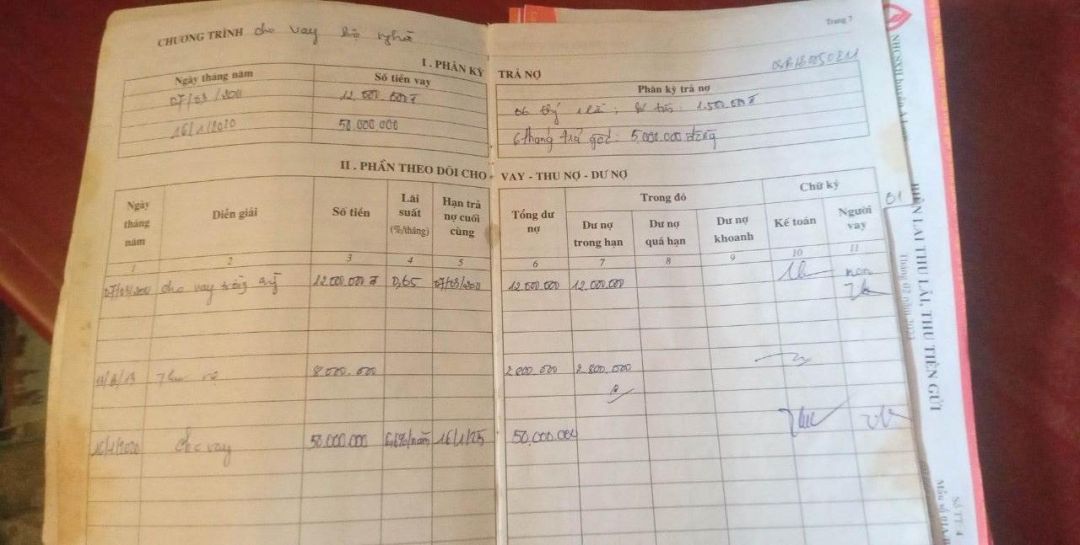 Trang 7
CHƯƠNG TRÌNH cho vay hộ nghè
I . PHÂN KỲ TRẢ NỢ
Ngày tháng năm Số tiền vay Phân kỳ trả nợ
12.000.000đ
1.500.000đ
16/1/2020 50.000.000 6 tháng trả gốc: 5.000.000 đồng
II . PHẦN THEO DÕI CHO VAY - THU NỢ - DƯ NỢ
Ngày tháng năm Diễn giải Số tiền Lãi suất (%/tháng) Hạn trả nợ cuối cùng Tổng dư nợ Trong đó Chữ ký
Dư nợ trong hạn Dư nợ quá hạn Dư nợ khoanh Kế toán Người vay
1 2 3 4 5 6 7 8 9 10 11
cho vay 12.000.000đ 0,65 12.000.000 12.000.000
8.000.000 2.800.000 2.800.000
16/1/2020 cho vay 50.000.000 6,6%/năm 16/1/25 50.000.000
BIÊN LAI THU LÃI, THU TIỀN GỬI